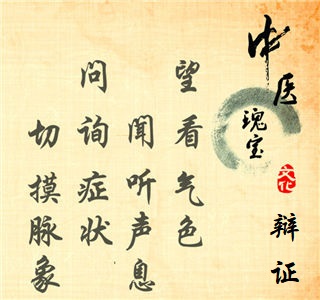 中医
瑰宝
文化
辩证
望看气色
闻听声息
问询症状
切摸脉象